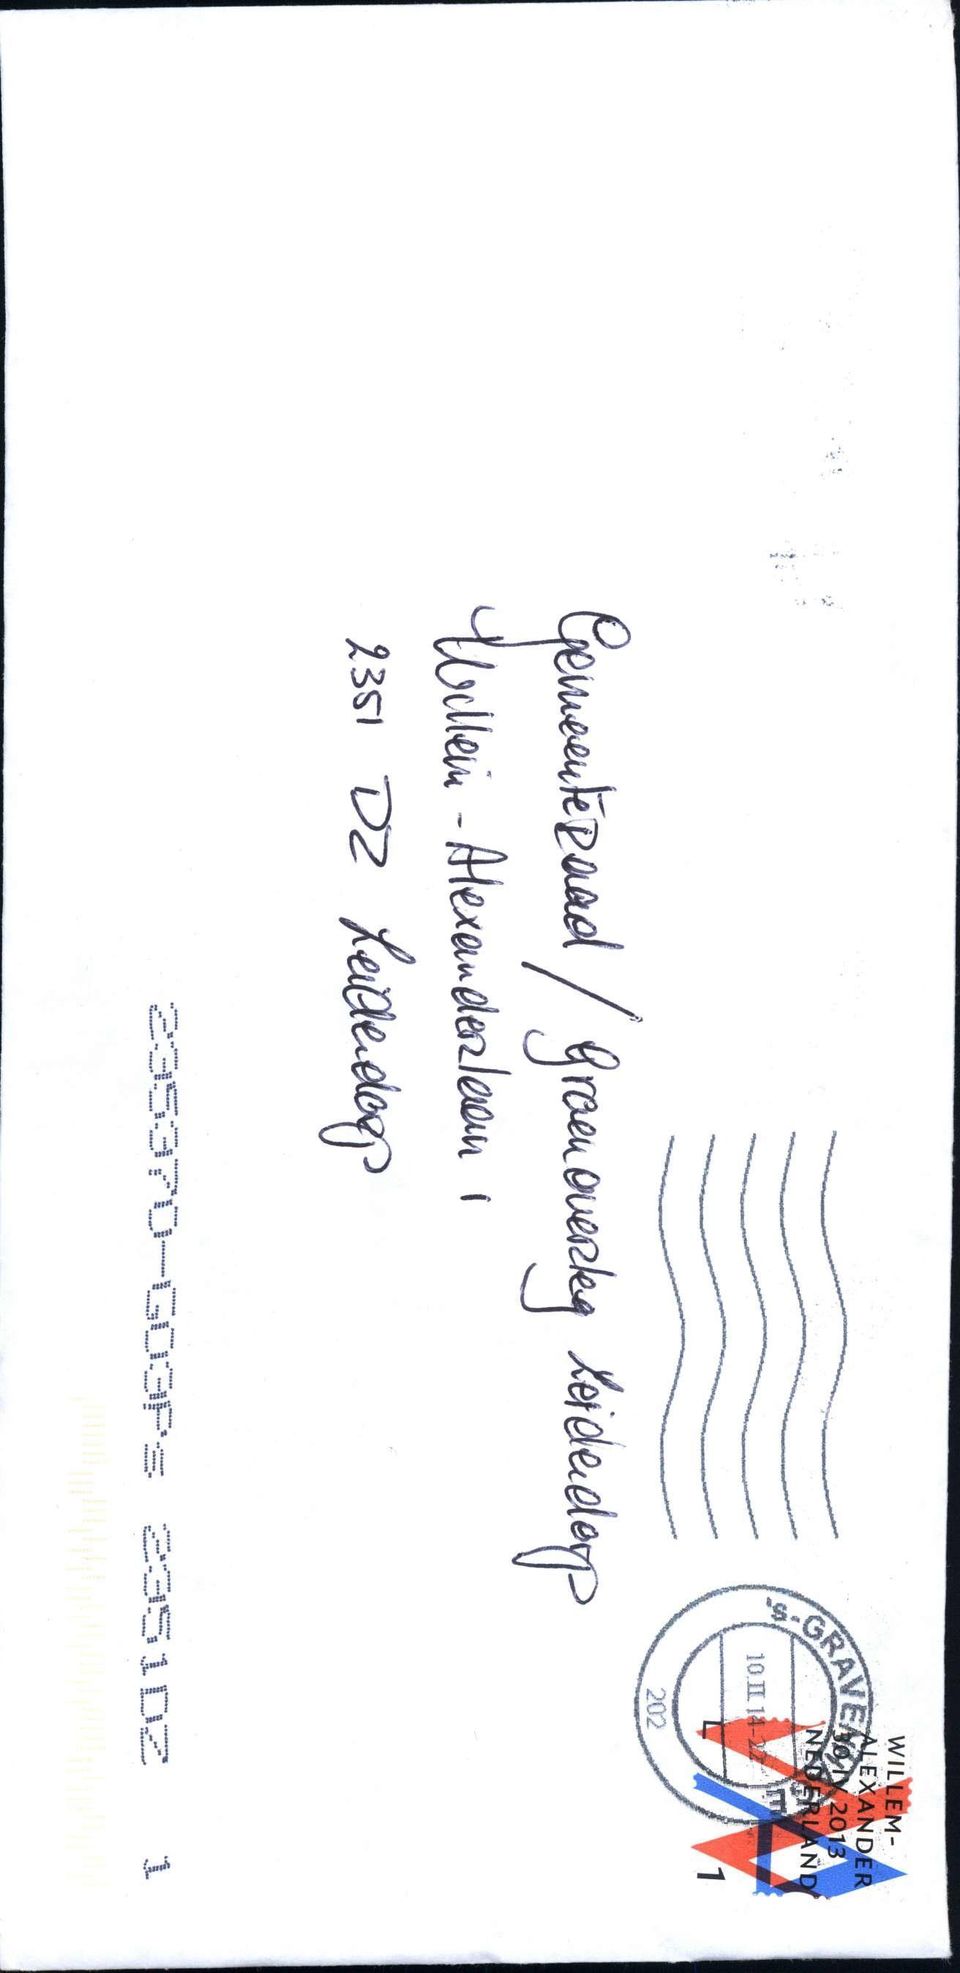 WILLEM-
ALEXANDER
30 IV 2013
NEDERLAND
1
's-GRAVEN
10.II.14-22
202
Gemeenteraad / groenoverleg Leiderdorp
Willem-Alexanderlaan 1
2351 DZ Leiderdorp
2351DZ 1